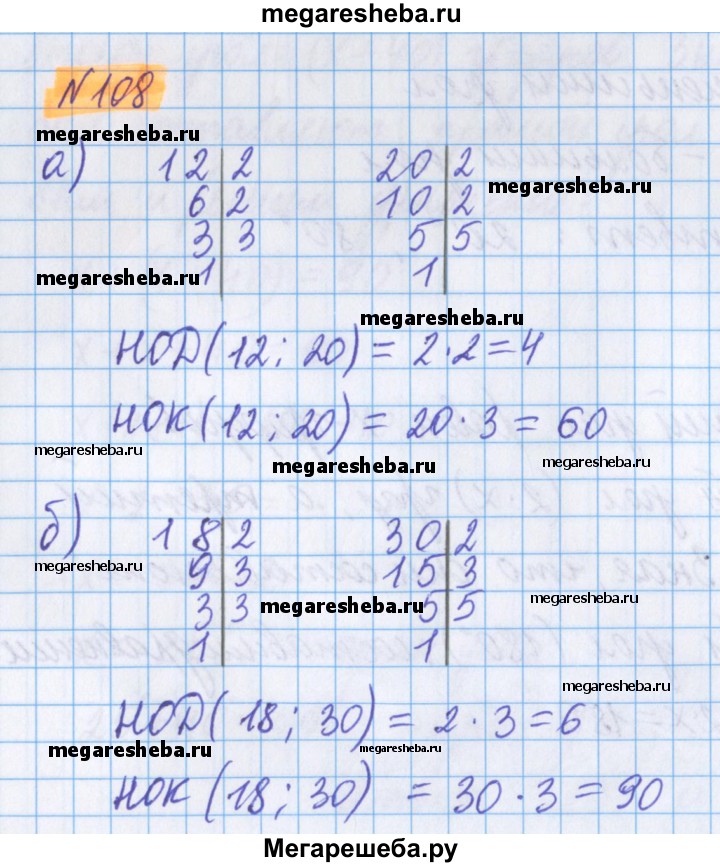 megaresheba.ru
N108
megaresheba.ru
а) 12 | 2 20 | 2
6 | 2 10 | 2 megaresheba.ru
3 | 3 5 | 5
megaresheba.ru 1 | 1 |
megaresheba.ru
НОД(12; 20) = 2·2=4
НОК(12; 20) = 20·3 = 60
megaresheba.ru megaresheba.ru
б) 18 | 2 30 | 2
megaresheba.ru 9 | 3 15 | 3
3 | 3 megaresheba.ru 5 | 5 megaresheba.ru
1 | 1 |
megaresheba.ru
НОД(18; 30) = 2·3=6
megaresheba.ru megaresheba.ru
НОК(18; 30) = 30·3=90
Мегарешеба.ру